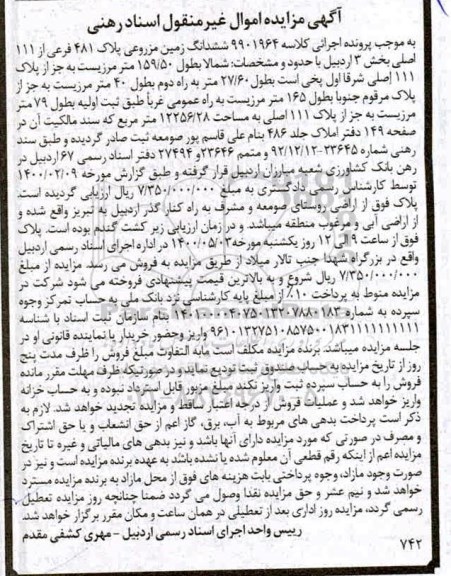 آگهی مزایده اموال غیرمنقول اسناد رهنی
به موجب پرونده اجرائی کلاسه ۹۹۰۱۹۶۴ ششدانگ زمین مزروعی پلاک ۴۸۱ فرعی از ۱۱۱
اصلی بخش ۳ اردبیل با حدود و مشخصات: شمالا بطول ۱۵۹/۵۰ متر مرزیست به جز از پلاک
۱۱۱ اصلی شرقا اول یخی است بطول ۲۷/۶۰ متر مرزیست به راه دوم بطول ۴۰ متر مرزیست به جز از
پلاک مرقوم جنوبا بطول ۱۶۵ متر مرزیست به راه عمومی غربا طبق ثبت اولیه بطول ۷۹ متر
مرزیست به جز از پلاک ۱۱۱ اصلی به مساحت ۱۲۲۵۶/۲۸ متر مربع که سند مالکیت آن در
صفحه ۱۴۹ دفتر املاک جلد ۴۸۶ بنام علی قاسم پور صومعه ثبت صادر گردیده و طبق سند
رهنی شماره ۲۳۶۴۵-۹۲/۱۲/۱۲ و متمم ۲۳۶۴۶و ۲۷۴۹۴ دفتر اسناد رسمی ۶۷ اردبیل در
رهن بانک کشاورزی شعبه مبارزان اردبیل قرار گرفته و طبق گزارش مورخه ۱۴۰۰/۰۲/۰۹
توسط کارشناس رسمی دادگستری به مبلغ ۷/۳۵۰/۰۰۰/۰۰۰ ریال ارزیابی گردیده است.
پلاک فوق از اراضی روستای صومعه و مشرف به راه کنار گذر اردبیل به تبریز واقع شده و
از اراضی آبی و مرغوب منطقه میباشد. و در زمان ارزیابی زیر کشت گندم بوده است. پلاک
فوق از ساعت ۹ الی ۱۲ روز یکشنبه مورخه ۱۴۰۰/۰۵/۰۳ در اداره اجرای اسناد رسمی اردبیل
واقع در بزرگراه شهدا جنب تالار میلاد از طریق مزایده به فروش می رسد. مزایده از مبلغ
۷/۳۵۰/۰۰۰/۰۰۰ ریال شروع و به بالاترین قیمت پیشنهادی فروخته می شود شرکت در
مزایده منوط به پرداخت ۱۰٪ از مبلغ پایه کارشناسی نزد بانک ملی به حساب تمرکز وجوه
سپرده به شماره بنام سازمان ثبت اسناد با شناسه
واریز وحضور خریدار یا نماینده قانونی او در
جلسه مزایده میباشد. برنده مزایده مکلف است مابه التفاوت مبلغ فروش را ظرف مدت پنج
روز از تاریخ مزایده به حساب صندوق ثبت تودیع نماید و در صورتیکه ظرف مهلت مقرر مانده
فروش را به حساب سپرده ثبت واریز نکند مبلغ مزبور قابل استرداد نبوده و به حساب خزانه
واریز خواهد شد و عملیات فروش از درجه اعتبار ساقط و مزایده تجدید خواهد شد. لازم به
ذکر است پرداخت بدهی های مربوط به آب، برق، گاز اعم از حق انشعاب و یا حق اشتراک
و مصرف در صورتی که مورد مزایده دارای آنها باشد و نیز بدهی های مالیاتی و غیره تا تاریخ
مزایده اعم از اینکه رقم قطعی آن معلوم شده یا نشده باشد به عهده برنده مزایده است و نیز در
صورت وجود مازاد، وجوه پرداختی بابت هزینه های فوق از محل مازاد به برنده مزایده مسترد
خواهد شد و نیم عشر و حق مزایده نقدا وصول می گردد ضمنا چنانچه روز مزایده تعطیل
رسمی گردد، مزایده روز اداری بعد از تعطیلی در همان ساعت و مکان مقرر برگزار خواهد شد.
رییس واحد اجرای اسناد رسمی اردبیل - مهری کشفی مقدم
۷۴۲